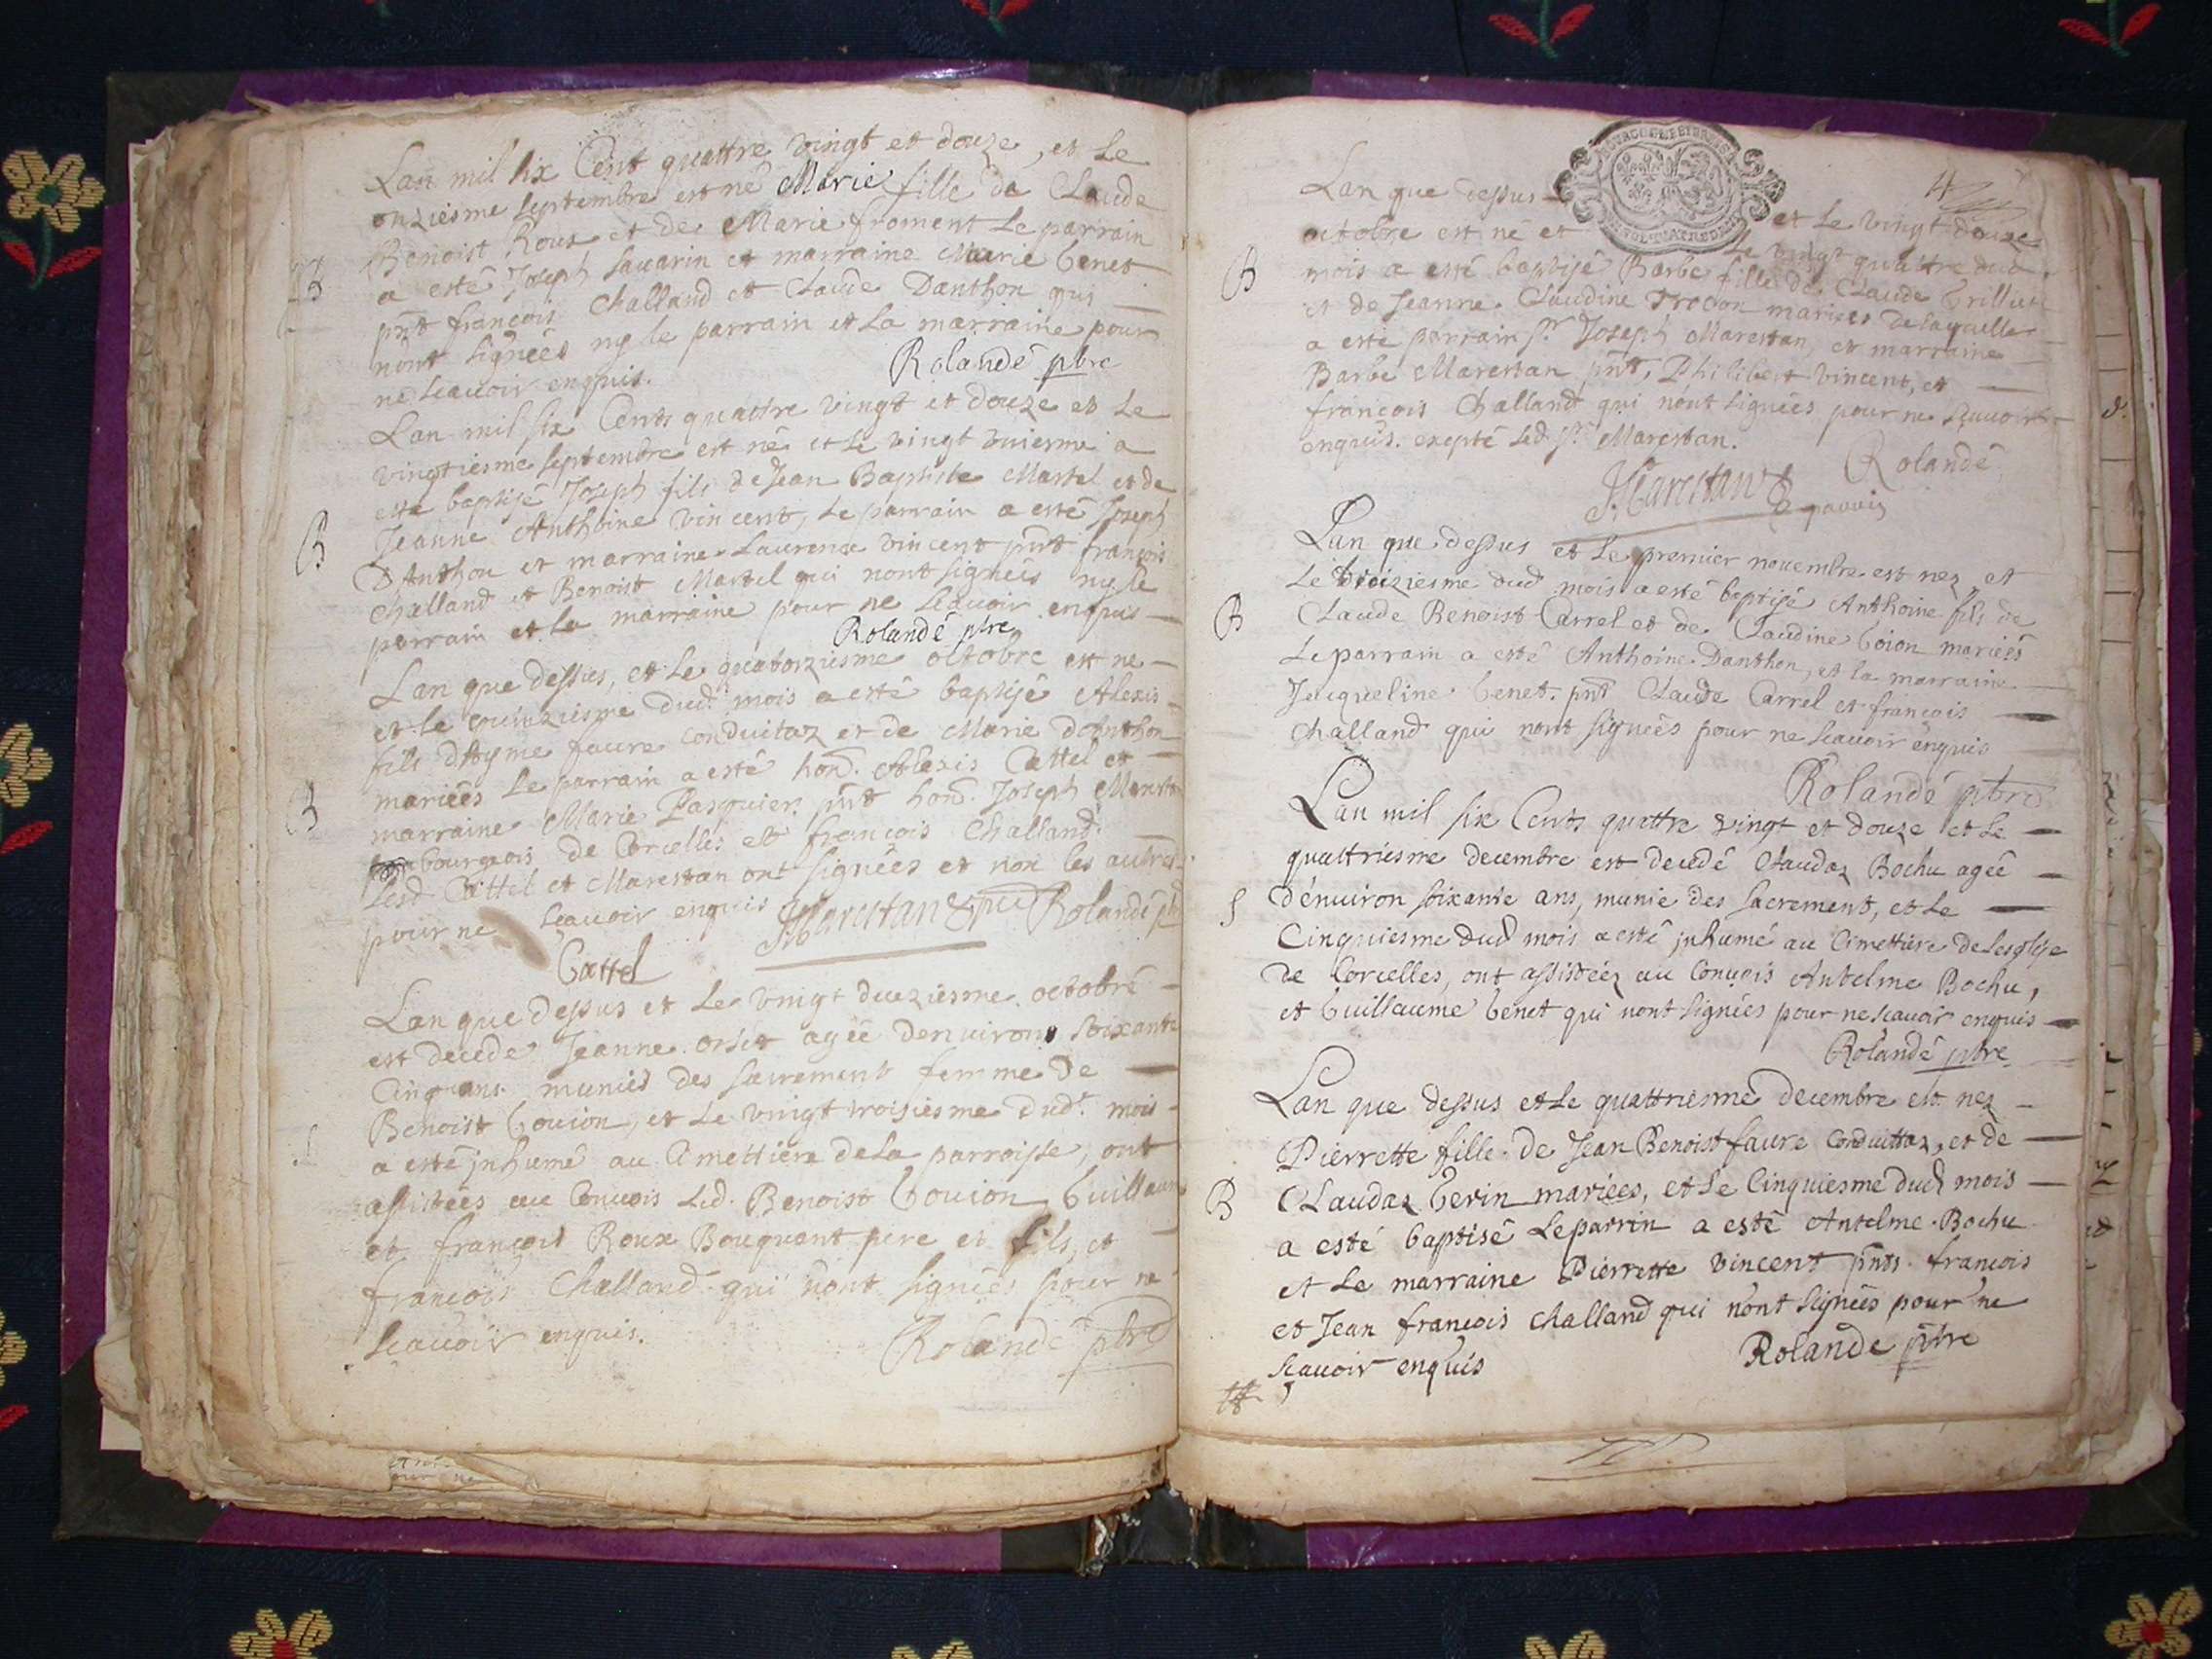 Lan mil six Cent quattre vingt et douze, et le
onziesme septembre est né Marie fille de Claude
Benoist Roux et de Marie froment Le parrain
B
a esté Joseph Sauarin et marraine Marie Genet
pnt françois Challand et Claude Danthon qui
nont signées ny le parrain et la marraine pour
ne scauoir enquis.
Rolandé ptre
Lan mil six Cents quattre vingt et douze et le
vingtiesme septembre est né et le vingt uniesme a
esté baptisé Joseph fils de Jean Baptiste Martel et de
Jeanne Anthoine vincent, le parrain a esté Joseph
B
DAnthon et marraine Laurence vincent pnt françois
Challand et Benoist Martel qui nont signées ny le
parrain et la marraine pour ne scauoir enquis
Rolandé ptre
Lan que dessus, et le quatorziesme octobre est ne
et le quinziesme dud. mois a esté baptisé Alexis
fils dAyme faure conduitaz et de Marie danthon
mariées Le parrain a esté hon. Alexis Cattel et
B
marraine Marie Pasquier pnt hon. Joseph Marestan
bourgeois de Corcelles et françois Challand
Lesd Cattel et Marestan ont signées et non les autres
pour ne scauoir enquis
JMarestan
Rolandé ptre
Cattel
Lan que dessus et le vingt deuziesme octobre
est decede Jeanne orset agée denuiron soixante
Cinq ans munies des sacrement femme de
Benoist Gouion, et le vingt troisiesme dud. mois
S
a esté jnhumé au Cimettiere de la parroisse, ont
assistées au Conuois led. Benoist Gouion Guillaume
et françois Roux Bouquant pere et fils, et
françois Challand qui nont signées pour ne
scauoir enquis.
Rolandé ptre
4
Lan que dessus
et le vingt douze
octobre est né et
le vingt quattre dud.
B
mois a esté baptisé Barbe fille de Claude Grillet
et de Jeanne Claudine Trocon mariées de laquelle
a esté parrain sr Joseph Marestan, et marraine
Barbe Marestan pnt, Philibert vincent, et
françois Challand qui nont signées pour ne scauoir
enquis. exepté led. sr Marestan.
Rolandé
JMarestan
parrin
Lan que dessus et le premier nouembre est nez et
Le troiziesme dud mois a esté baptisé Anthoine fils de
B
Claude Benoist Carrel et de Claudine Goion mariées
Le parrain a esté Anthoine Danthon, et la marraine
Jacqueline Genet. pnt Claude Carrel et françois
Challand qui nont signées pour ne scauoir enquis
Rolandé ptre
Lan mil six Cents quattre vingt et douze et le
quattriesme decembre est decedé Claudaz Bochu agée
S
dénuiron soixante ans, munie des sacrement, et le
Cinquiesme dud mois a esté jnhumé au Cimettiere de Lesglise
de Corcelles, ont assistéez au Conuois Antelme Bochu,
et Guillaume Genet qui nont signées pour ne scauoir enquis
Rolandé ptre
Lan que dessus et le quattriesme decembre est nez
Pierrette fille de Jean Benoist faure Conduittaz, et de
B
Claudaz Gerin mariées, et le Cinquiesme dud mois
a esté baptisé Le parrin a esté Antelme Bochu
et le marraine Pierrette vincent pnts. françois
et Jean françois challand qui nont signées pour ne
scauoir enquis
Rolandé ptre